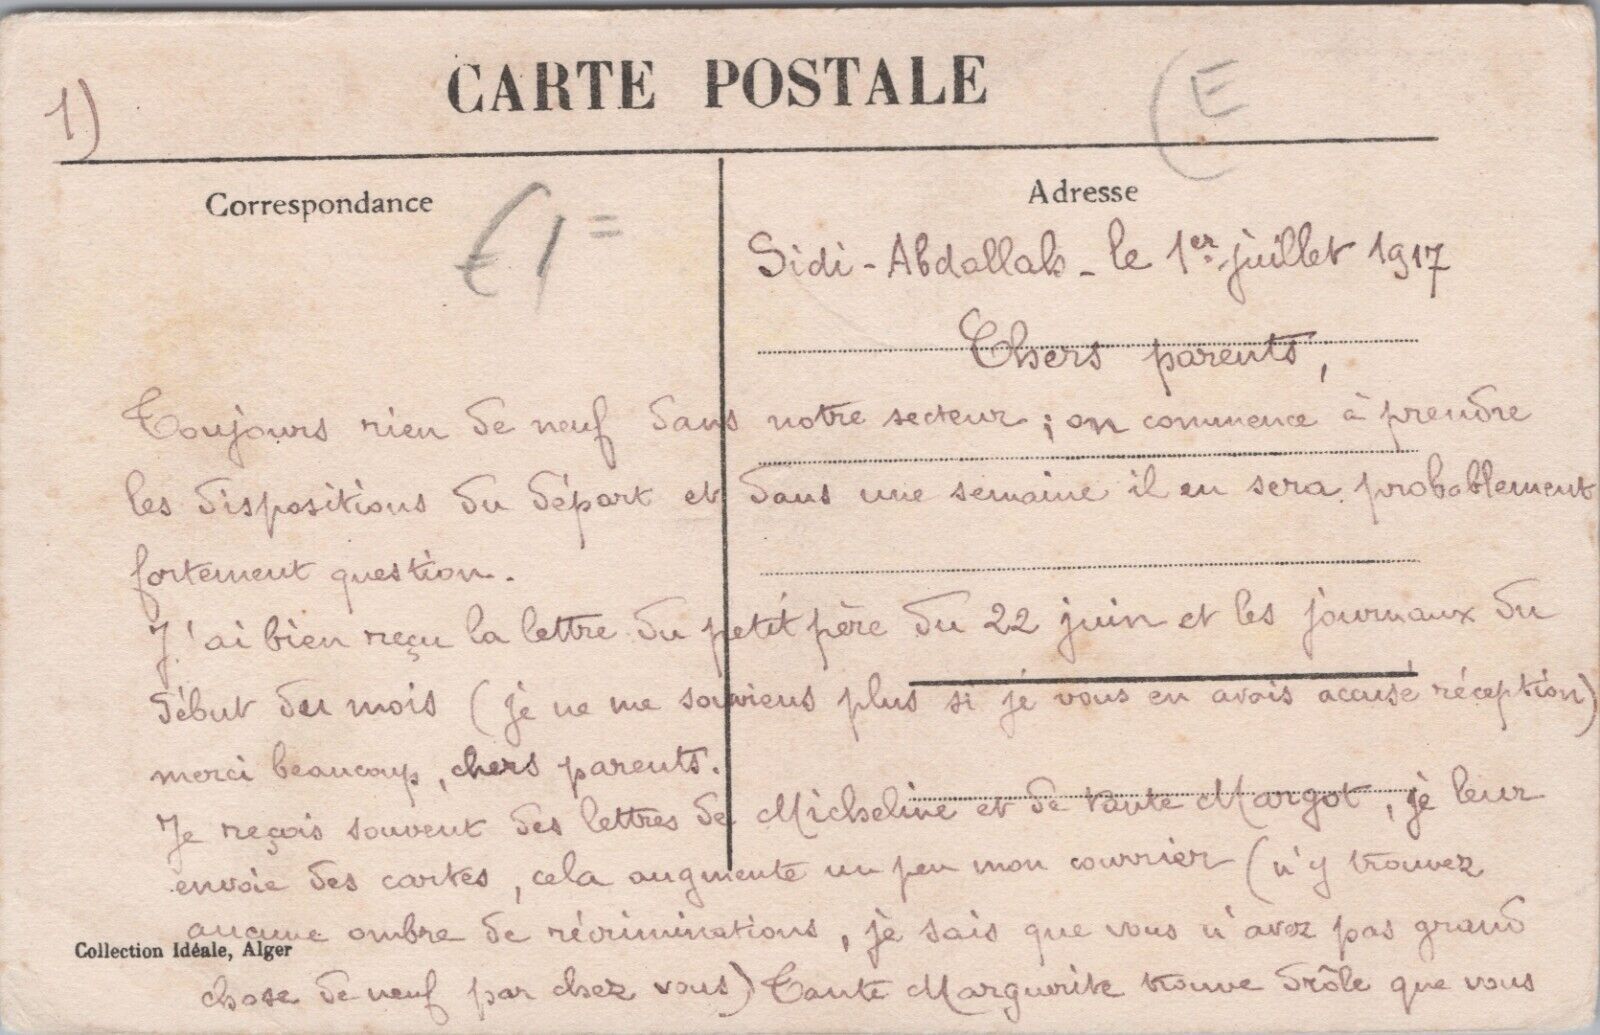 1)
CARTE POSTALE
E
Correspondance
Adresse
€1=
Sidi-Abdallah - le 1er juillet 1917
Chers parents,
Toujours rien de neuf dans notre secteur ; on commence à prendre
les dispositions du départ et dans une semaine il en sera probablement
fortement question.
J'ai bien reçu la lettre du petit père du 22 juin et les journaux du
début du mois (je ne me souviens plus si je vous en avais accusé réception)
merci beaucoup, chers parents.
Je reçois souvent des lettres de Micheline et de tante Margot, je leur
envoie des cartes, cela augmente un peu mon courrier (n'y trouvez
aucune ombre de récriminations, je sais que vous n'avez pas grand
Collection Idéale, Alger
chose de neuf par chez vous) Tante Marguerite trouve drôle que vous